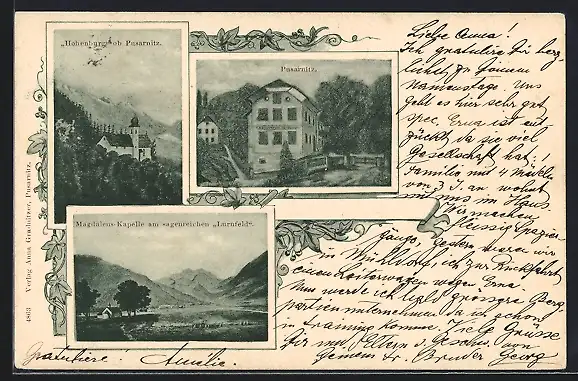 „Hohenburg“ ob Pusarnitz.
Pusarnitz.
Magdalens-Kapelle am sagenreichen „Lurnfeld“.
4863 Verlag Anna Grabnitzer, Pusarnitz.
Liebe Anna!
Ich gratulire Dir herz-
lichst zu Deinem
Namenstage. Uns
geht es hier sehr gut
spec. Erna ist ent-
zückt, da sie viel
Gesellschaft hat!
Familie mit 4 Mädeln
von 7 J. an wohnt
mit uns im Haus
Wir machen
fleissig Spazier-
gänge, gestern waren wir
in Mühldorf, ich zur Rückfahrt
einen Leiterwagen wegen Erna
Nun werde ich bald grössere Berg-
partien unternehmen da ich schon
in Training komme. Viele Grüsse
Dir und Eltern u. Geschw. von
Deinem tr. Bruder Georg
Gratuliere! Amalie.